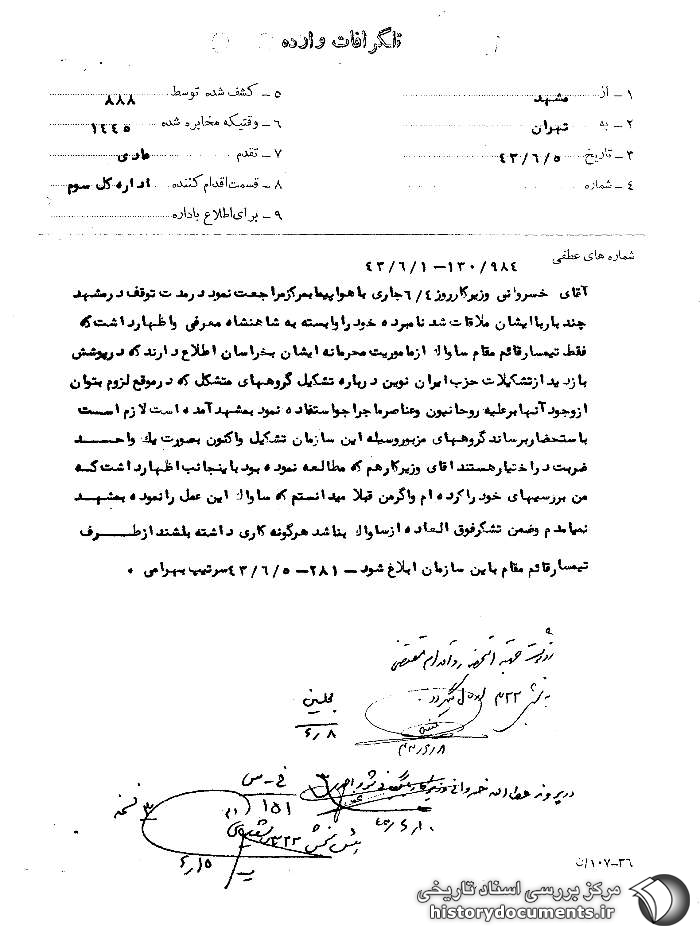 تلگرافات وارده
۱ - از مشهد
۲ - به تهران
۳ - تاریخ ۴۳/۶/۵
۴ - شماره
۵ - کشف شده توسط ۸۸۸
۶ - وقتیکه مخابره شده ۱۴۴۵
۷ - تقدم عادی
۸ - قسمت اقدام کننده اداره کل سوم
۹ - برای اطلاع باداره
شماره های عطفی ۱۳۰/۹۸۴ - ۴۳/۶/۱
آقای خسروانی وزیر کار روز ۶/۴ جاری با هواپیما بمرکز مراجعت نمود در مدت توقف در مشهد
چند بار با ایشان ملاقات شد نامبرده خود را وابسته به شاهنشاه معرفی و اظهار داشت که
فقط تیمسار قائم مقام ساواك از ماموریت محرمانه ایشان بخراسان اطلاع دارند که در پوشش
بازدید از تشکیلات حزب ایران نوین درباره تشکیل گروههای متشکل که در موقع لزوم بتوان
از وجود آنها برعلیه روحانیون و عناصر ماجراجو استفاده نمود بمشهد آمده است لازم است
باستحضار برساند گروههای مزبور وسیله این سازمان تشکیل و اکنون بصورت یك واحد
ضربت در اختیار هستند اقای وزیر کار هم که مطالعه نموده بود باینجانب اظهار داشت که
من بررسیهای خود را کرده ام و اگر من قبلا میدانستم که ساواك این عمل را نموده بمشهد
نمیامدم وضمن تشکر فوق العاده از ساواك بنا شد هرگونه کاری داشته باشند از طرف
تیمسار قائم مقام باین سازمان ابلاغ شود - ۲۸۱ - ۴۳/۶/۵ سرتیپ بهرامی .
به بخش ۳۲۲ ارسال گردد
۶/۸
۴۳/۶/۸
۱۵۱
۴۳/۶/۱۰
۳ نسخه
بخش ۳۲۲
۶/۱۵
۳۶-۱۰۷/ن
مرکز بررسی اسناد تاریخی
historydocuments.ir